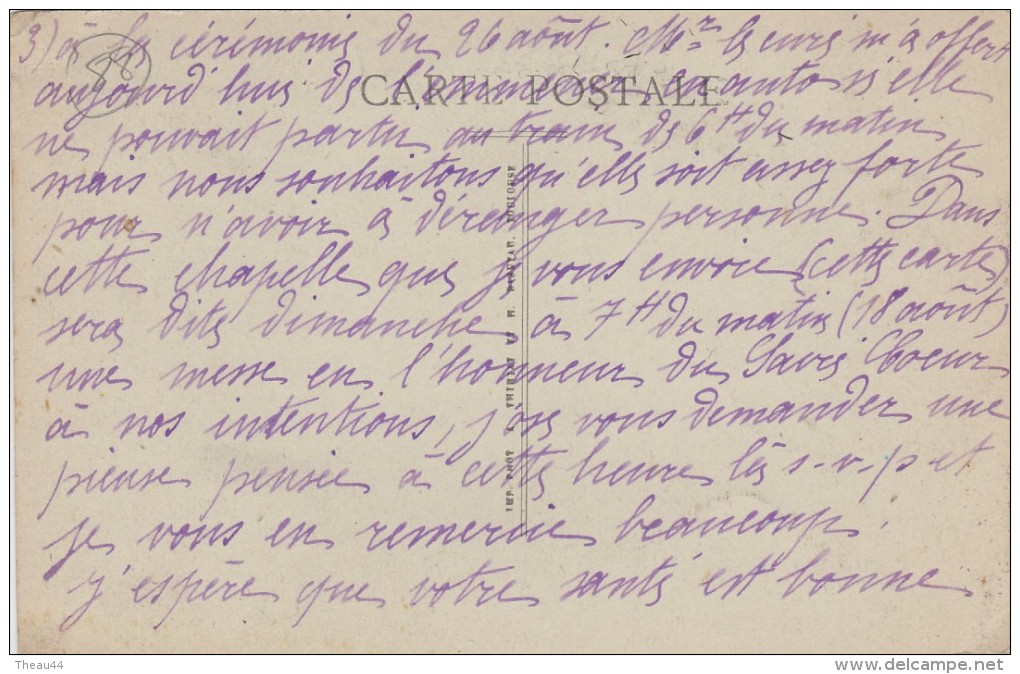 3) à les cérémonies du 26 août. Mr le curé m'a offert
88
CARTE POSTALE
aujourd'hui de l'emmener en auto si elle
ne pouvait partir au train de 6H du matin
mais nous souhaitons qu'elle soit assez forte
pour n'avoir à déranger personne. Dans
cette chapelle que je vous envoie (cette carte)
sera dite dimanche à 7H du matin (18 août)
une messe en l'honneur du Sacré Coeur
à nos intentions, j'ose vous demander une
pieuse pensée à cette heure là s-v-p et
je vous en remercie beaucoup.
j'espère que votre santé est bonne
IMP. PHOT. TOULOUSE
Theau44
www.delcampe.net